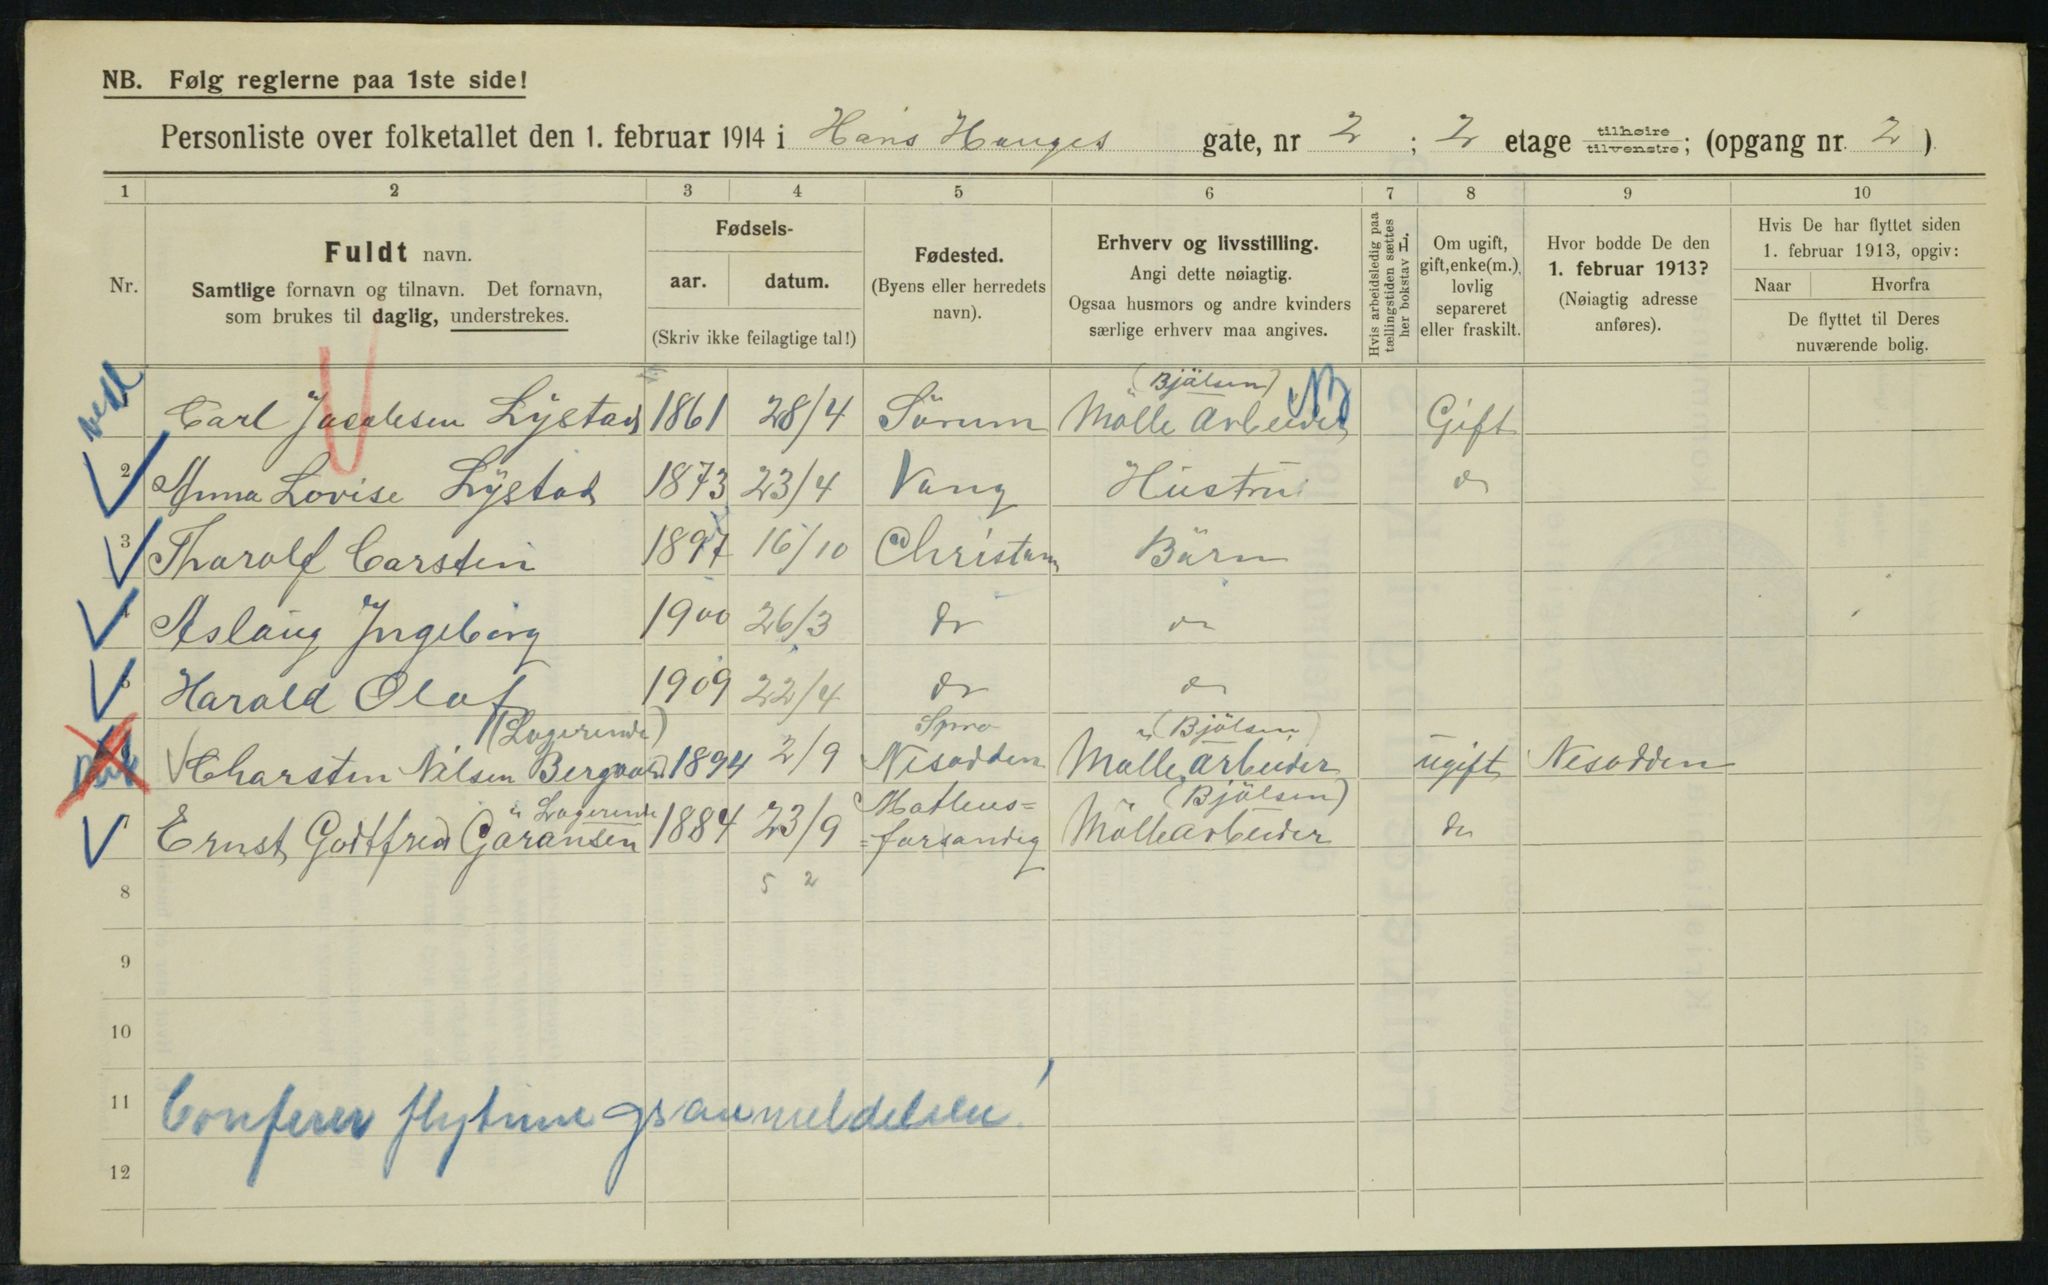 NB. Følg reglerne paa 1ste side!
Personliste over folketallet den 1. februar 1914 i Hans Hauges gate, nr 2 ; 2 etage tilhøire tilvenstre; (opgang nr. 2 )
1 2 3 4 5 6 7 8 9 10
Nr.
Fuldt navn.
Samtlige fornavn og tilnavn. Det fornavn,
som brukes til daglig, understrekes.
Fødsels-
aar. datum.
(Skriv ikke feilagtige tal!)
Fødested.
(Byens eller herredets
navn).
Erhverv og livsstilling.
Angi dette nøiagtig.
Ogsaa husmors og andre kvinders
særlige erhverv maa angives.
Hvis arbeidsledig paa
tællingstiden sættes
her bokstav L.
Om ugift,
gift, enke(m.),
lovlig
separeret
eller fraskilt.
Hvor bodde De den
1. februar 1913?
(Nøiagtig adresse
anføres).
Hvis De har flyttet siden
1. februar 1913, opgiv:
Naar Hvorfra
De flyttet til Deres
nuværende bolig.
(Bjölsen) NB
Carl Jacobsen Lystad 1861 28/4 Sörum Mölle Arbeider Gift
2 Anna Lovise Lystad 1873 23/4 Vang Hustru do
3 Tharalf Carsten 1897 16/10 Christiania Börn
4 Aslaug Ingeborg 1900 26/3 do do
5 Harald Olaf 1909 22/4 do do
(Logerende) (Bjölsen)
6 Charsten Nilsen Bergvold 1894 2/9 Nesodden Mölle Arbeider ugift Nesodden
Logerende Matheus= (Bjölsen)
7 Ernst Godtfred Göransen 1884 23/9 =forsandig Möllearbeider do
8 5 2
9
10
11 Conferer flytningsanmeldelsen!
12